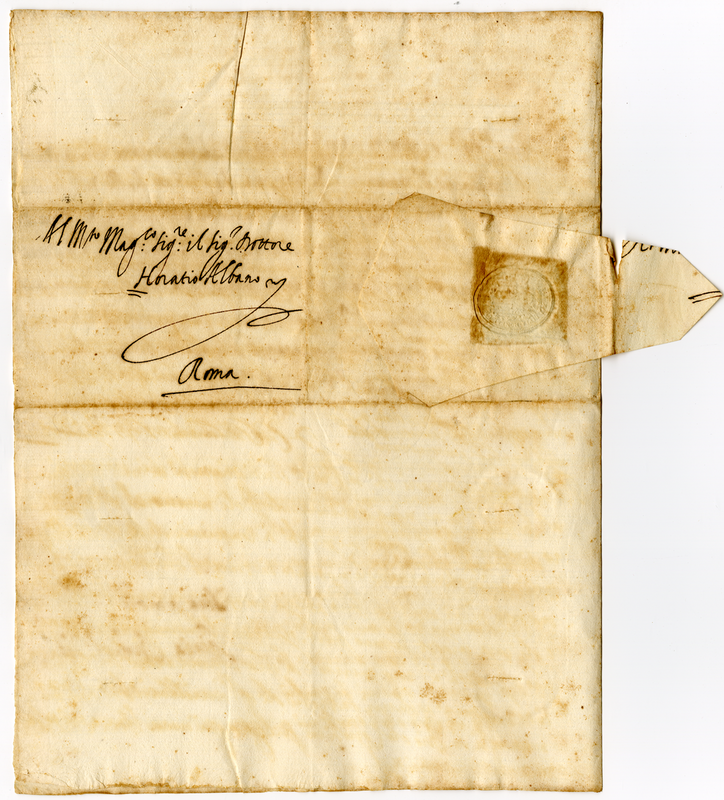 Al M.to Mag.co Sig.re il Sig.r Dottore
Horatio Albano
Roma.